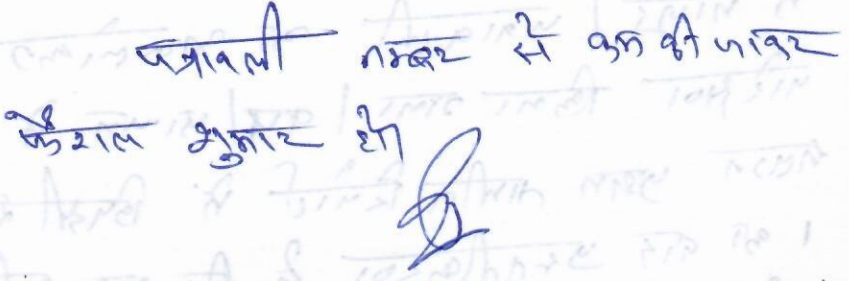 पत्रावली नम्बर से कम की जाकर
फैशल शुमार हो।